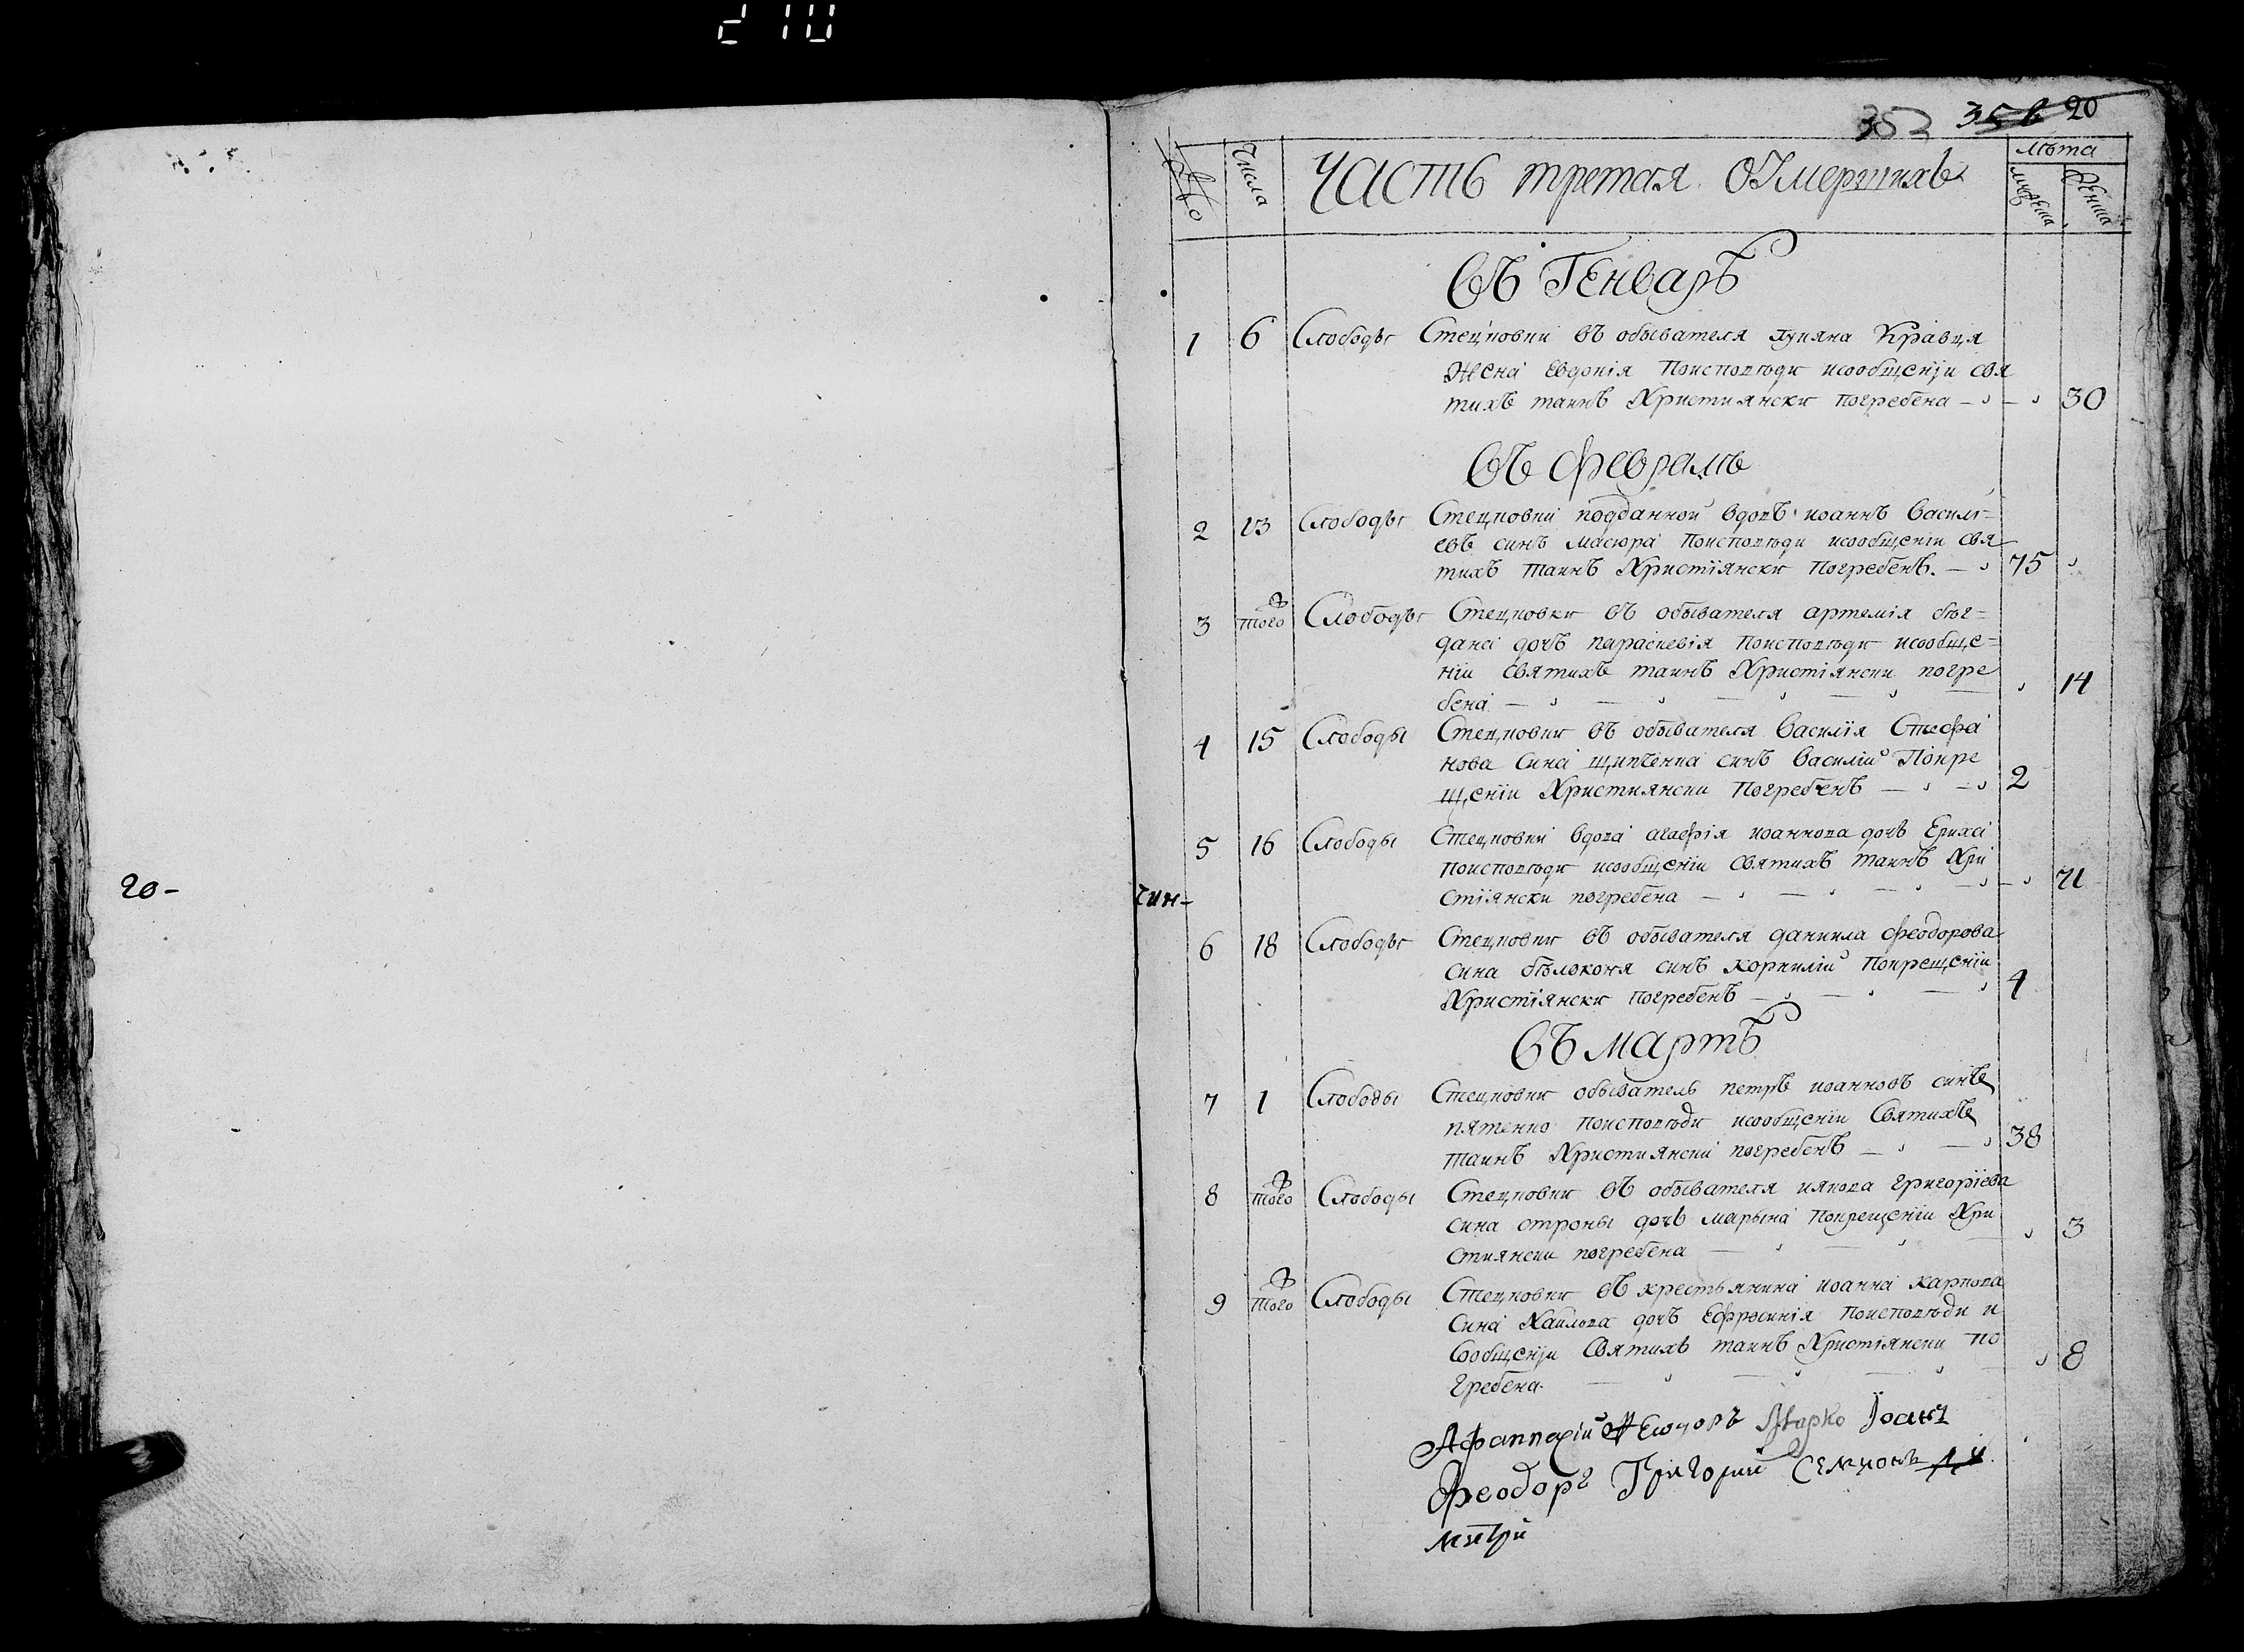 210
352 356 20
Число
Часть третая О Умершихъ
лѣта
мужеска
женска
Въ Генварѣ
1 6 Слободы Стецковки въ обывателя лукяна Кравця
жена Евдокія По исповѣди и сообщеніи свя
тихъ таинъ Християнски погребена 30
Въ февралѣ
2 13 Слободы Стецковки подданной вдовъ иоаннъ Василі=
евъ синъ Масюра По исповѣди и сообщеніи свя
тихъ таинъ Християнски погребенъ. 75
3 того Слободы Стецковки въ обывателя артемія бѣг=
дана дочъ параскевія По исповѣди и сообще=
ніи святихъ таинъ Християнски погре
бена 14
4 15 Слободы Стецковки въ обывателя Василія Стефа
нова Сина щипченка синъ Василій По кре
щеніи Християнски Погребенъ 2
5 16 Слободы Стецковки вдова агафія иоаннова дочъ Ериха
По исповѣди и сообщеніи Святихъ таинъ Хри
стіянски погребена 71
6 18 Слободы Стецковки въ обывателя даниила феодорова
сина бѣлоконя синъ корнилій По крещеніи
Християнски погребенъ 4
Въ мартѣ
7 1 Слободы Стецковки обыватель петръ иоанновъ синъ
пятенко По исповѣди и сообщеніи Святихъ
таинъ Християнски погребенъ 38
8 того Слободы Стецковки въ обывателя иякова григоріева
сина строны дочъ марына По крещеніи Хри
стиянски погребена 3
9 того Слободы Стецковки въ крестьянина иоанна карпова
Сина Хаилова дочъ Ефросинія По исповѣди и
сообщеніи Святихъ таинъ Християнски по
гребена. 8
20-
чин-
Марко Іоанъ
Феодоръ Григорий Семионъ
митрий